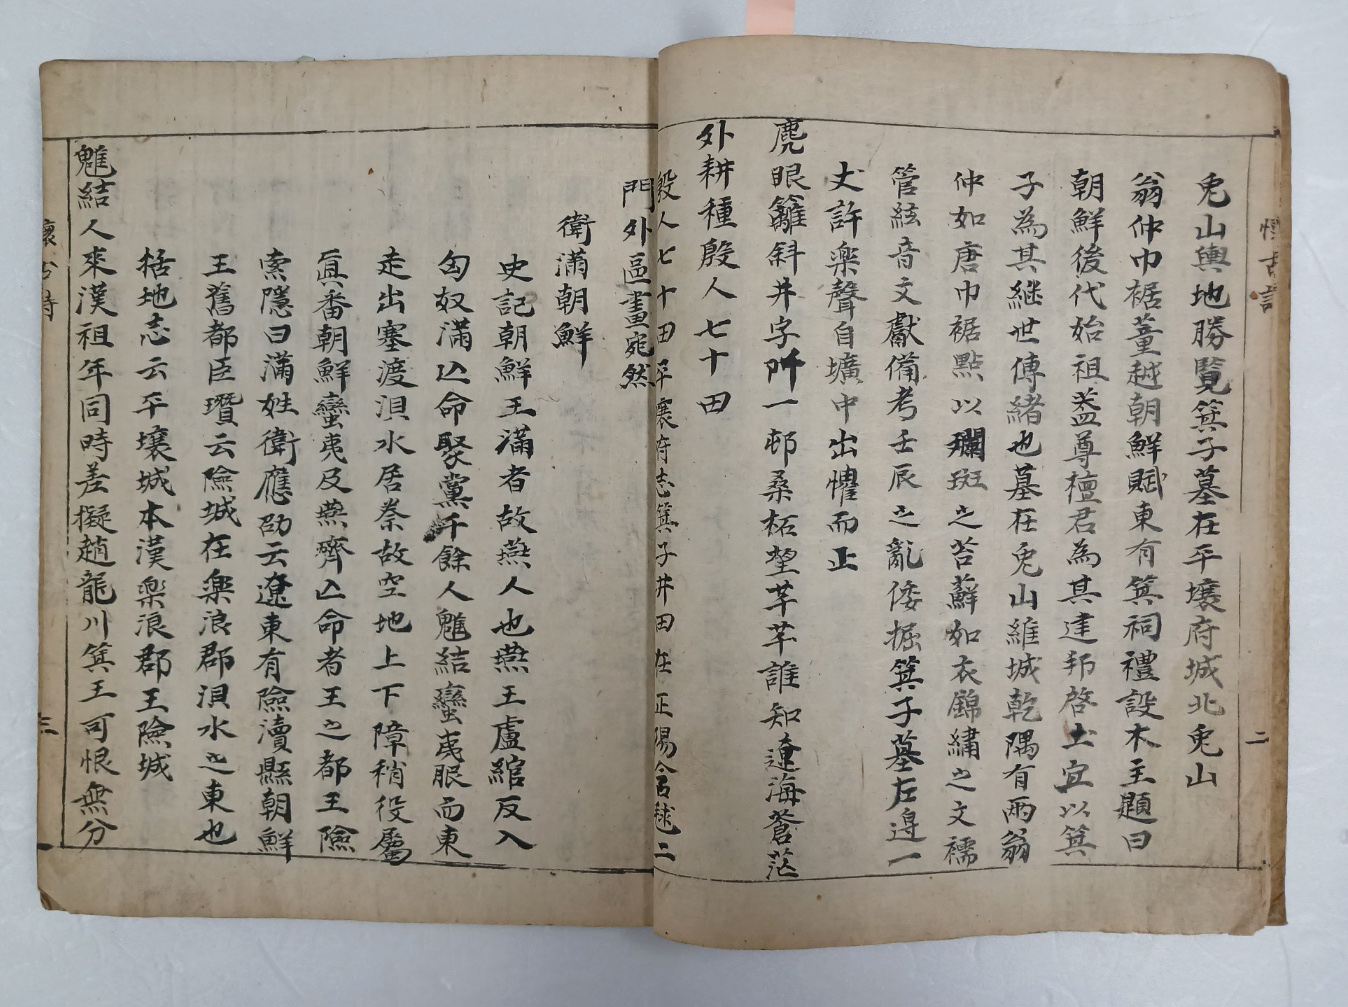 懷古詩
二
兎山輿地勝覽箕子墓在平壤府城北兎山
翁仲巾裾董越朝鮮賦東有箕祠禮設木主題曰
朝鮮後代始祖盖尊檀君為其建邦啓土宜以箕
子為其継世傳緒也墓在兎山維城乾隅有兩翁
仲如唐巾裾點以斕斑之苔蘚如衣錦繡之文襦
管絃音文獻備考壬辰之亂倭掘箕子墓左邉一
丈許楽聲自壙中出懼而止
麂眼籬斜井字阡一邨桑柘犂芊芊誰知遼海蒼茫
外耕種殷人七十田
殷人七十田平壤府志箕子井田在正陽含毬二
門外區畫宛然
衛滿朝鮮
史記朝鮮王滿者故燕人也燕王盧綰反入
匈奴滿亾命聚黨千餘人魋結蠻夷服而東
走出塞渡浿水居秦故空地上下障稍役屬
眞番朝鮮蠻夷及燕齊亾命者王之都王險
索隱曰滿姓衛應劭云遼東有險瀆縣朝鮮
王舊都臣瓚云險城在樂浪郡浿水之東也
括地志云平壤城本漢楽浪郡王險城
魋結人來漢祖年同時差擬趙龍川箕王可恨無分
懷古詩
三